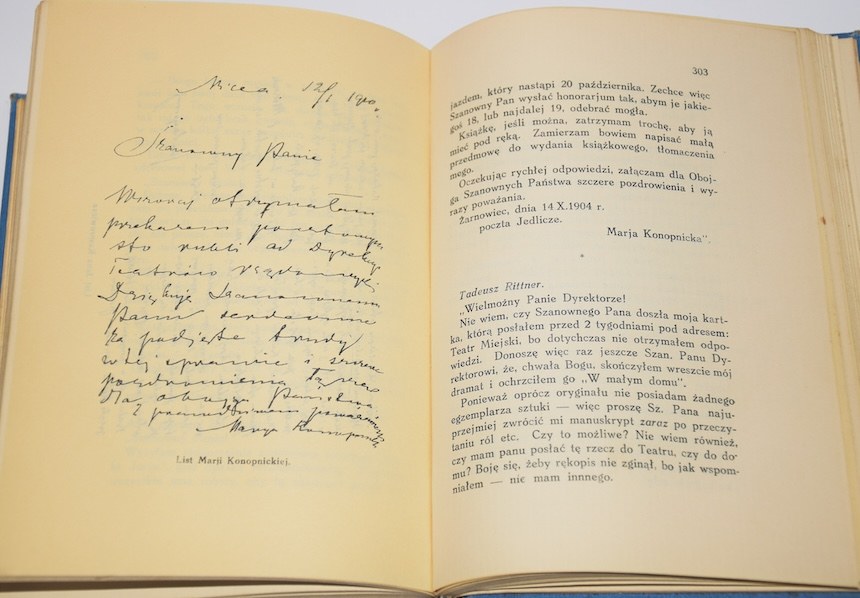 Nicea. 12/I 190
Szanowny Panie
Wczoraj otrzymałam
przekazem pocztowym
sto rubli od Dyrekcyi
Teatrów
Dziękuję Szanownemu
Panu serdecznie
za podjęte trudy
w tej sprawie i szczere
pozdrowienia łączę
dla obojga Państwa
Z prawdziwem poważaniem
Marya Konopnicka
List Marji Konopnickiej.
303
jazdem, który nastąpi 20 października. Zechce więc
Szanowny Pan wysłać honorarjum tak, abym je jakie-
goś 18, lub najdalej 19, odebrać mogła.
Książkę, jeśli można, zatrzymam trochę, aby ją
mieć pod ręką. Zamierzam bowiem napisać małą
przedmowę do wydania książkowego, tłomaczenia
mego.
Oczekując rychłej odpowiedzi, załączam dla Oboj-
ga Szanownych Państwa szczere pozdrowienia i wy-
razy poważania.
Żarnowiec, dnia 14.X.1904 r.
poczta Jedlicze.
Marja Konopnicka".
Tadeusz Rittner.
„Wielmożny Panie Dyrektorze!
Nie wiem, czy Szanownego Pana doszła moja kart-
ka, którą posłałem przed 2 tygodniami pod adresem:
Teatr Miejski, bo dotychczas nie otrzymałem odpo-
wiedzi. Donoszę więc raz jeszcze Szan. Panu Dy-
rektorowi, że, chwała Bogu, skończyłem wreszcie mój
dramat i ochrzciłem go „W małym domu".
Ponieważ oprócz oryginału nie posiadam żadnego
egzemplarza sztuki — więc proszę Sz. Pana naju-
przejmiej zwrócić mi manuskrypt zaraz po przeczy-
taniu ról etc. Czy to możliwe? Nie wiem również,
czy mam panu posłać tę rzecz do Teatru, czy do do-
mu? Boję się, żeby rękopis nie zginął, bo jak wspom-
niałem — nie mam innnego.